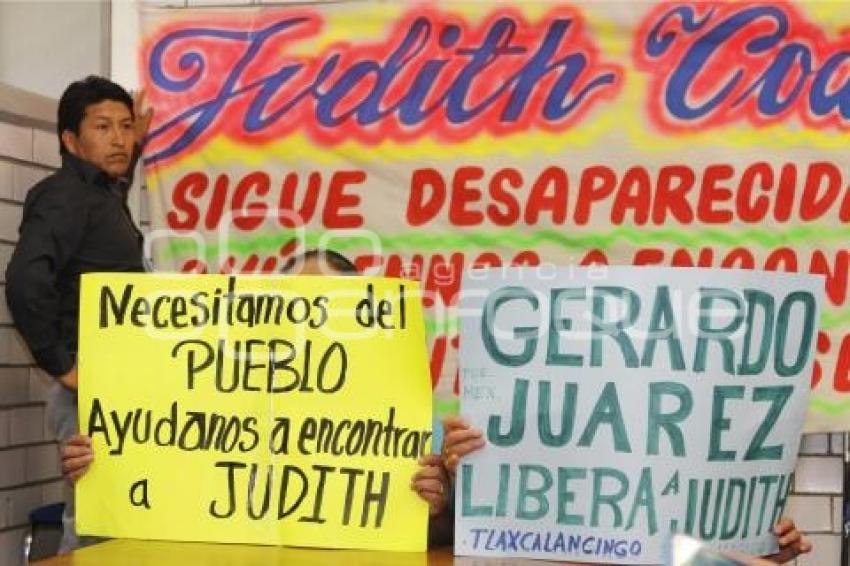 Judith Coa
SIGUE DESAPARECIDA
agencia
enfoque
Necesitamos del
PUEBLO
Ayudanos a encontrar
a JUDITH
GERARDO
MEX.
JUAREZ
LIBERA A JUDITH
TLAXCALANCINGO